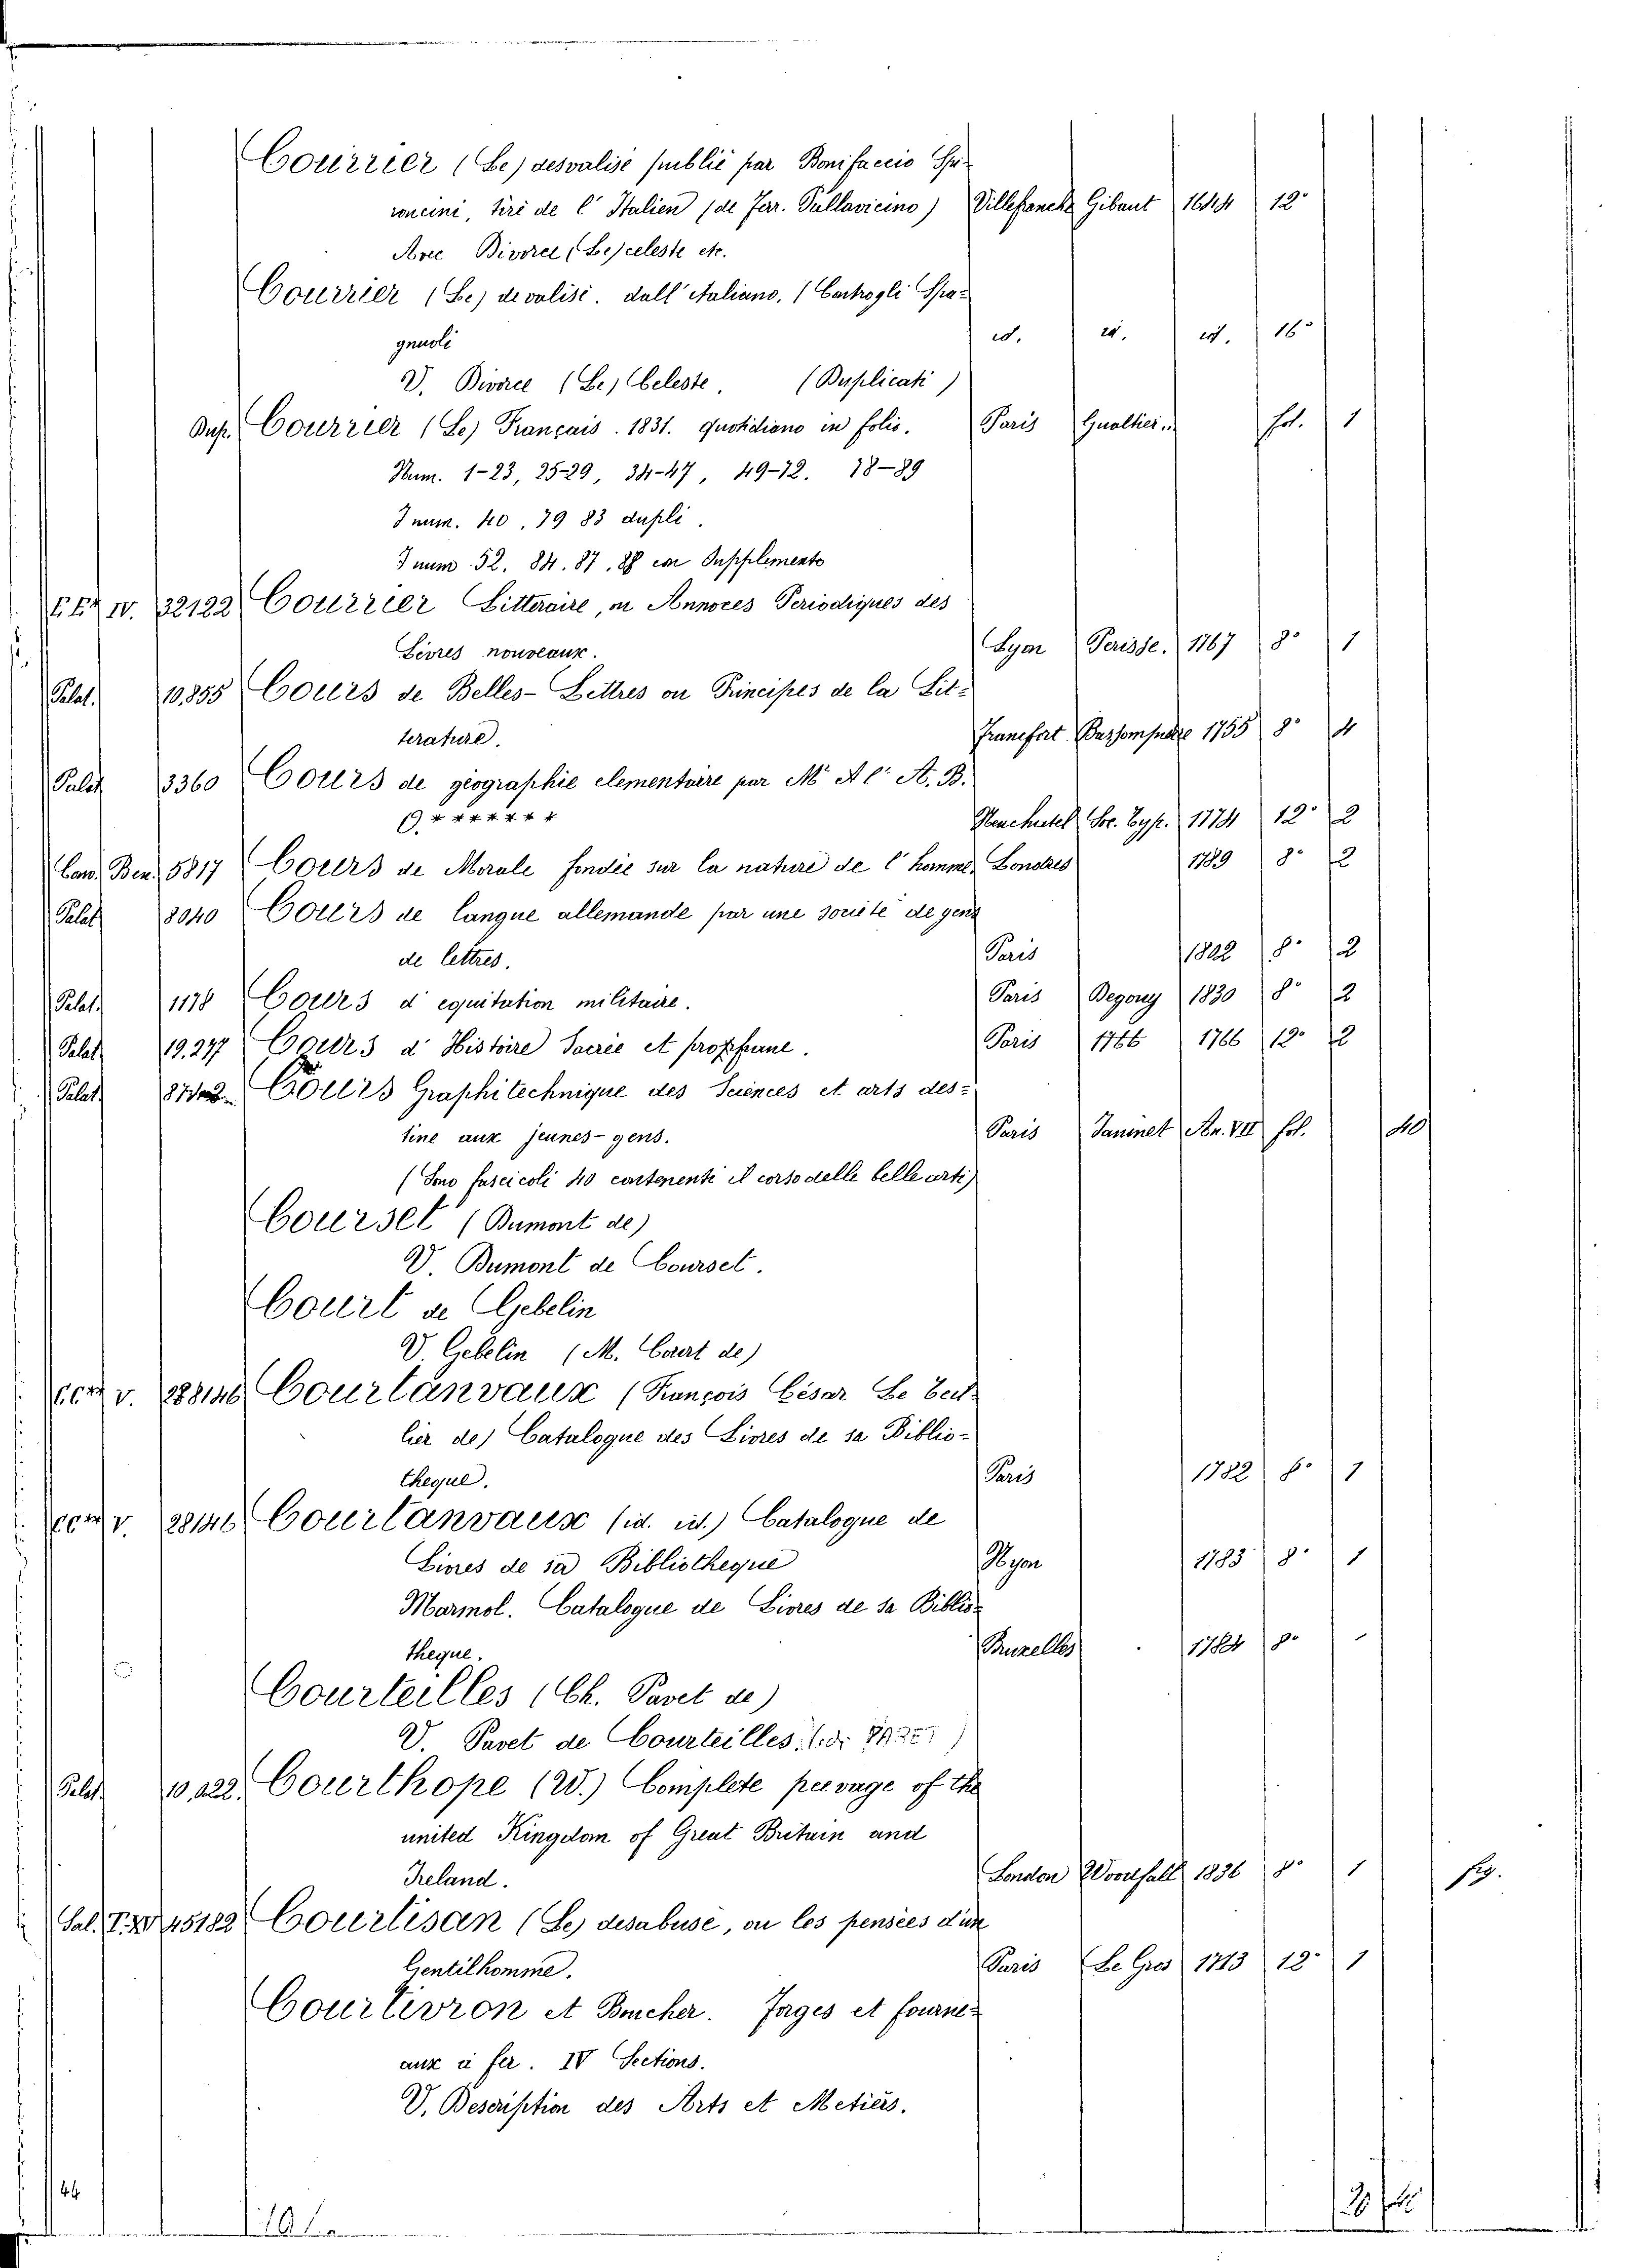 Courrier (Le) desvalisé publié par Bonifaccio Spi-
roncini, tiré de l'Italien (de Ferr. Pallavicino) Villefranche Gibaut 1644 12°
Avec Divorce (Le) celeste etc.
Courrier (Le) devalisé. dall'italiano. (Cartrogli Spa-
gnuoli id. id. id. 16°
V. Divorce (Le) Celeste. (Duplicati)
Dup. Courrier (Le) Français. 1831. quotidiano in folio. Paris Gualtier.. fol. 1
Num. 1-23, 25-29, 34-47, 49-72. 78-89
I num. 40, 79 83 dupli.
I num 52. 84. 87. 88 con Supplemento
IV. 32122 Courrier Litteraire, on Annoces Periodiques des
Livres nouveaux. Lyon Perisse. 1767 8° 1
Palat. 10,855 Cours de Belles-Lettres ou Principes de la Lit-
terature. Francfort Bassompierre 1755 8° 4
Palat 3360 Cours de géographie elementaire par Mr. A l'. A. B.
C. * * * * * * Neuchatel Soc. Typ. 1774 12° 2
Can. Ben. 5817 Cours de Morale fondée sur la nature de l'homme. Londres 1789 8° 2
Palat 8040 Cours de langue allemande par une société de gens
de lettres. Paris 1822 8° 2
Palat. 1178 Cours d'equitation militaire. Paris Degouy 1830 8° 2
Palat. 19.277 Cours d'Histoire Sacrée et prophane. Paris 1766 1766 12° 2
Palat. Cours Graphitechnique des Sciences et arts des-
tine aux jeunes-gens. Paris Janinet An. VII fol. 40
(Sono fascicoli 40 contenenti il corso delle belle arti)
Courset (Dumont de)
V. Dumont de Courset.
Court de Gebelin
V. Gebelin (M. Court de)
V. 28146 Courtanvaux (François César Le Tel-
lier de) Catalogue des Livres de sa Biblio-
theque. Paris 1782 8° 1
V. 28146 Courtanvaux (id. id.) Catalogue de
Livres de sa Bibliotheque Nyon 1783 8° 1
Marmol. Catalogue de Livres de sa Biblio-
theque. Bruxelles 1784 8°
Courteilles (Ch. Pavet de)
V. Pavet de Courteilles
Palat. 10,422. Courthope (W.) Complete peerage of the
united Kingdom of Great Britain and
Ireland. London Woodfall 1836 8° 1 fig.
Sal. T. XV 45182 Courtisan (Le) desabusé, ou les pensées d'un
Gentilhomme. Paris Le Gros 1713 12° 1
Courtivron et Bouchu. Forges et fourne-
aux à fer. IV Sections.
V. Description des Arts et Metiers.
44